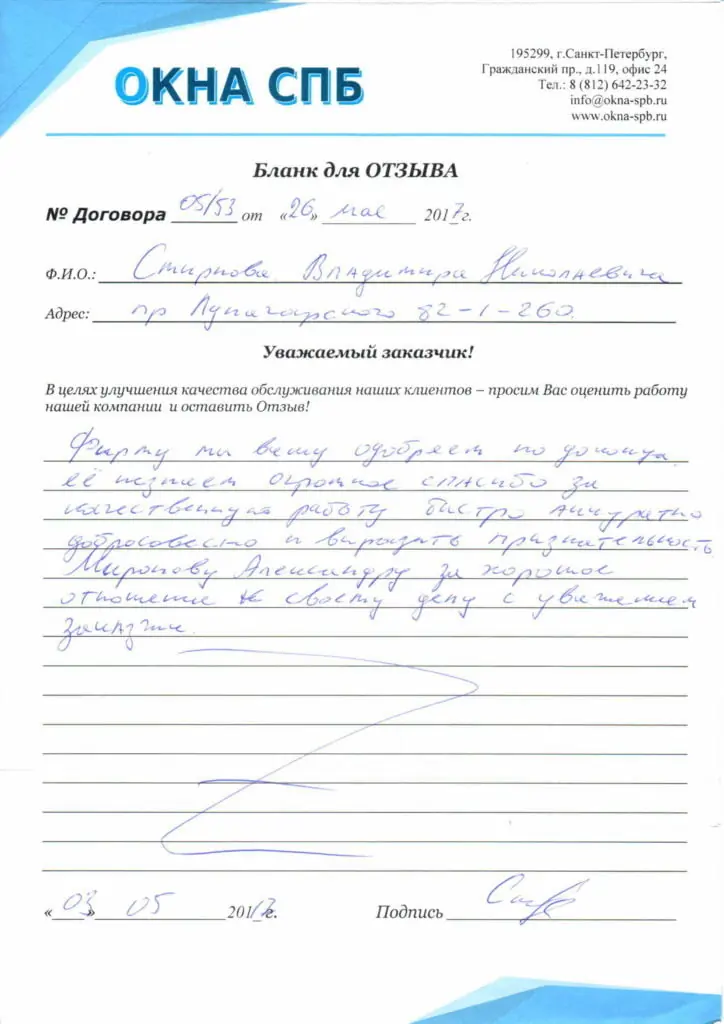 ОКНА СПБ
195299, г.Санкт-Петербург,
Гражданский пр., д.119, офис 24
Тел.: 8 (812) 642-23-32
info@okna-spb.ru
www.okna-spb.ru
Бланк для ОТЗЫВА
№ Договора 05/53 от «26» мае 2017г.
Ф.И.О.: Смирнова Владимира Николаевича
Адрес: пр Луначарского 82-1-260.
Уважаемый заказчик!
В целях улучшения качества обслуживания наших клиентов – просим Вас оценить работу
нашей компании и оставить Отзыв!
Фирму мы вашу одобряем по
её огромное спасибо за
качественную работу быстро аккуратно
добросовестно и выразить признательность
Миронову Александру за хорошое
отношение к своему делу с уважением
заказчик.
«03» 05 2017г. Подпись